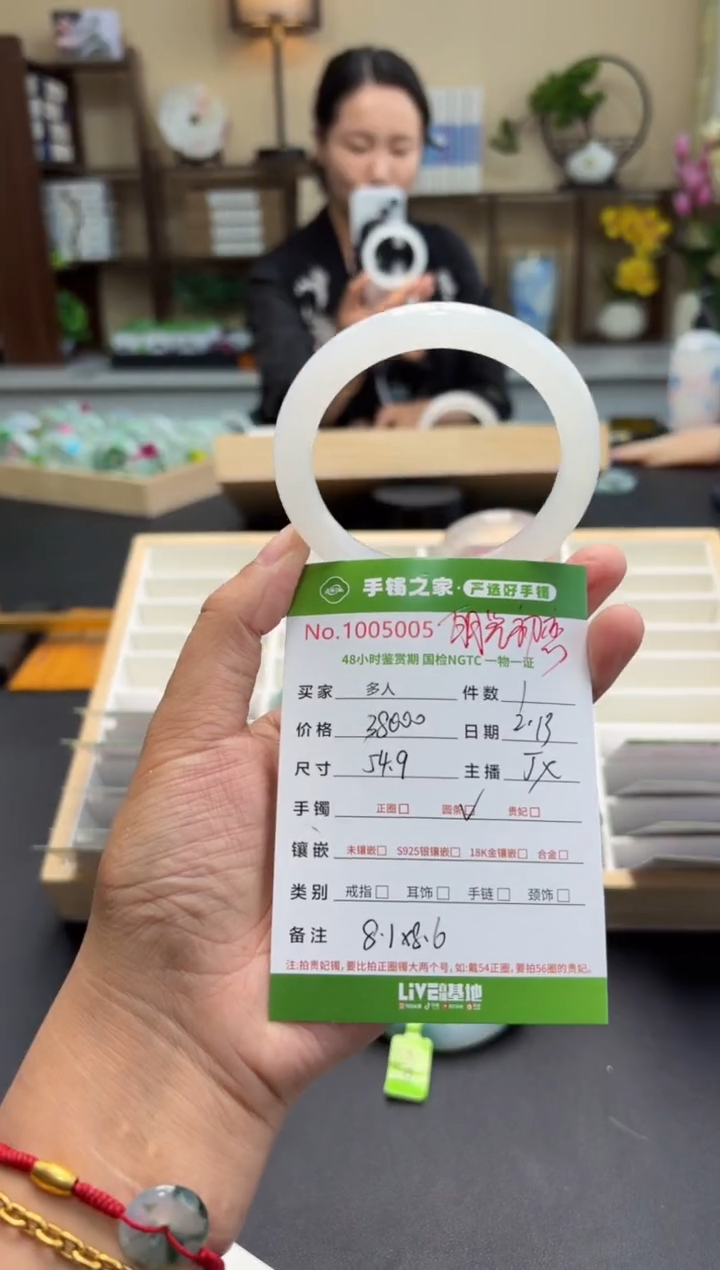 手镯之家·严选好手镯
No.1005005
48小时鉴赏期 国检NGTC 一物一证
买家 多人 件数 1
价格 38000 日期 2.13
尺寸 54.9 主播 JX
手镯 正圈□ 圆条□√ 贵妃□
镶嵌 未镶嵌□ S925银镶嵌□ 18K金镶嵌□ 合金□
类别 戒指□ 耳饰□ 手链□ 颈饰□
备注 8.1x8.6
注:拍贵妃镯,要比拍正圈镯大两个号,如:戴54正圈,要拍56圈的贵妃。
LIVE 基地